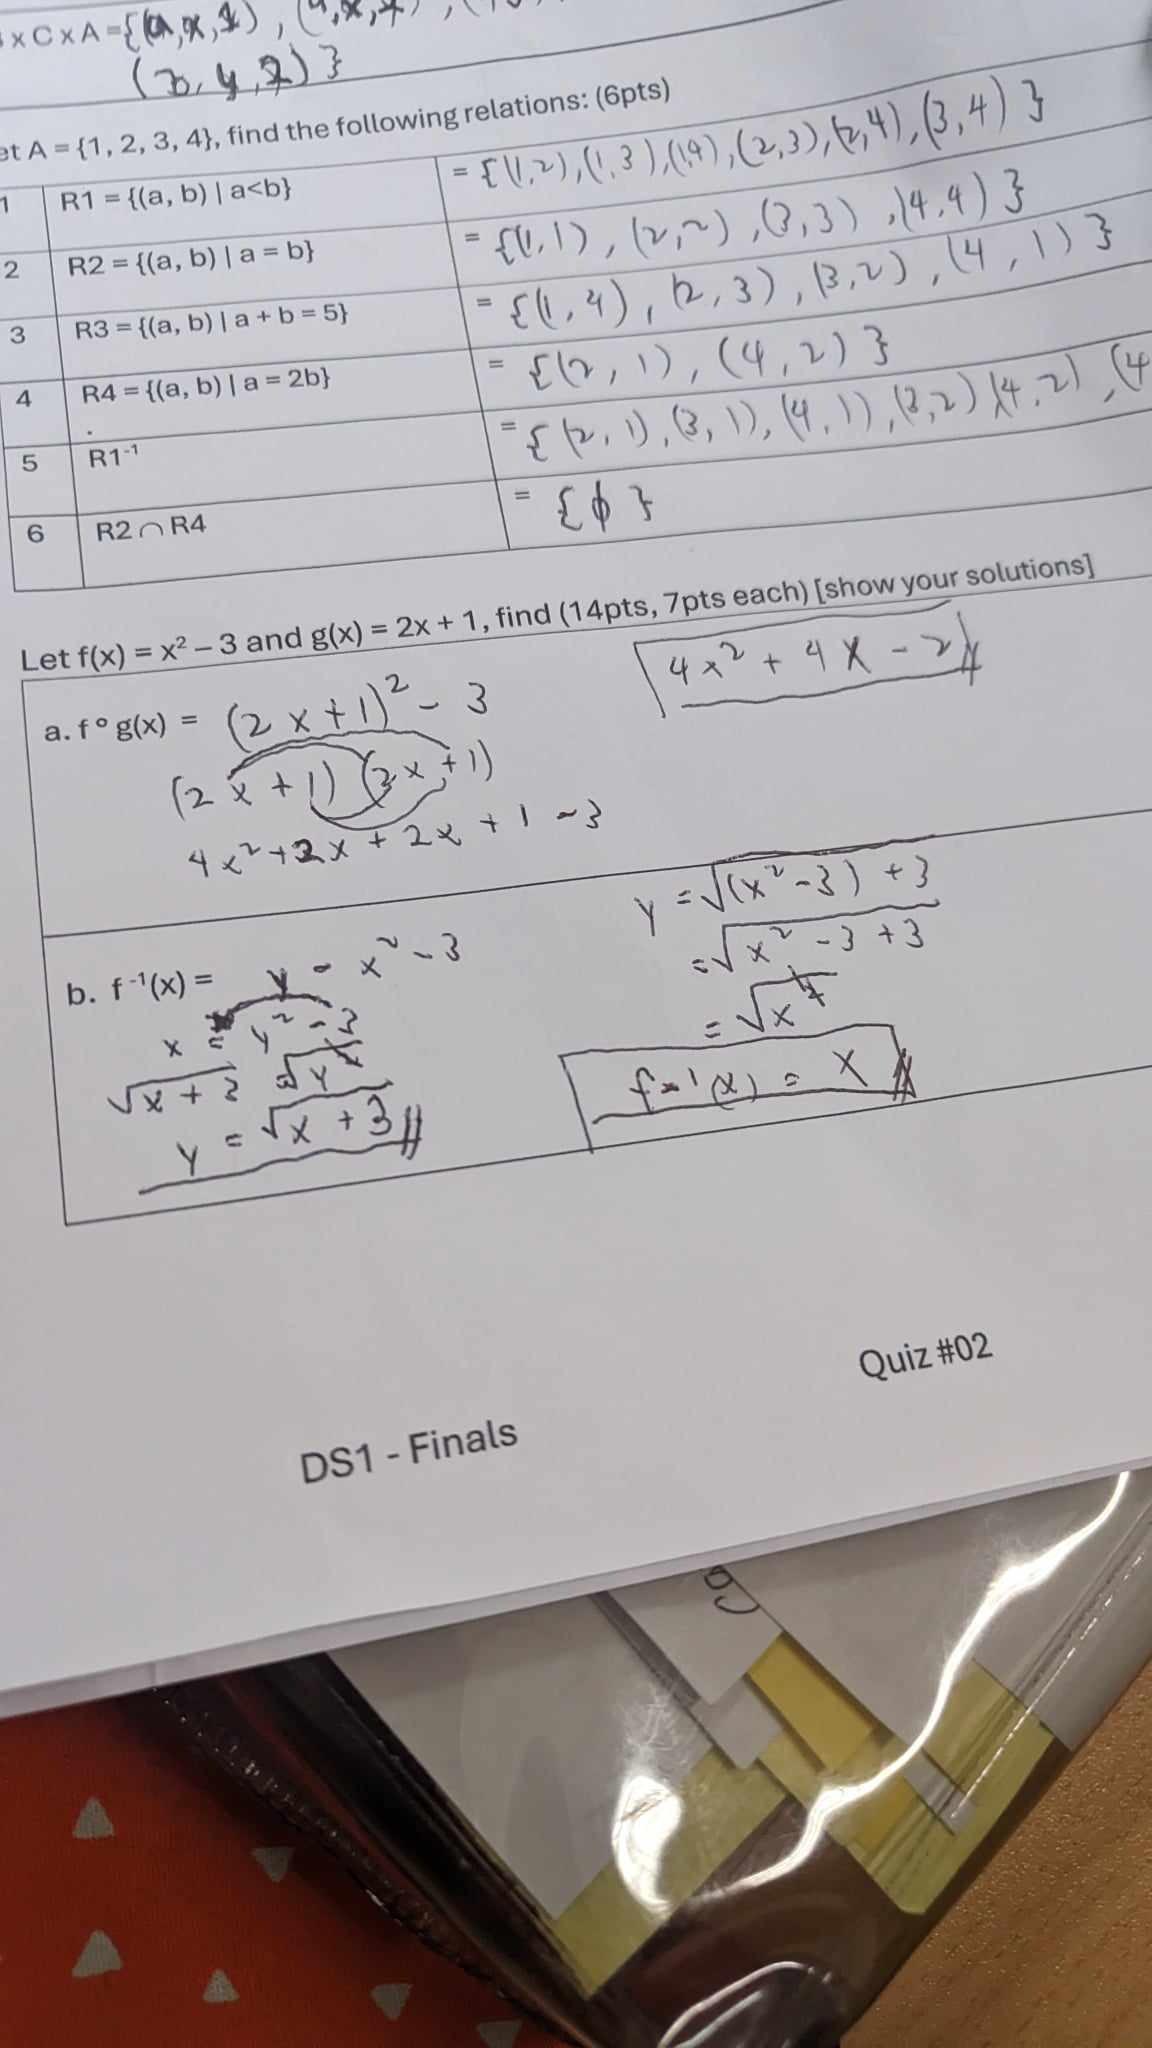 x C x A = {(a,x,1), (
(b, y, 2)}
et A = {1, 2, 3, 4}, find the following relations: (6pts)
1 R1 = {(a, b) | a<b} = {(1,2),(1,3),(1,4),(2,3),(2,4),(3,4)}
2 R2 = {(a, b) | a = b} = {(1,1), (2,2), (3,3), (4,4)}
3 R3 = {(a, b) | a + b = 5} = {(1,4), (2,3), (3,2), (4,1)}
4 R4 = {(a, b) | a = 2b} = {(2,1), (4,2)}
5 R1⁻¹ = {(2,1),(3,1),(4,1),(3,2),(4,2),(4
6 R2 ∩ R4 = {ϕ}
Let f(x) = x² – 3 and g(x) = 2x + 1, find (14pts, 7pts each) [show your solutions]
a. f ° g(x) = (2x+1)² - 3
(2x+1)(2x+1)
4x²+2x+2x+1-3
4x² + 4x - 2
b. f⁻¹(x) = y = x² - 3
x = y² - 3
√x+3 = √y²
y = √x+3
y = √(x²-3)+3
= √x²-3+3
= √x²
f-1(x) = x
Quiz #02
DS1 - Finals